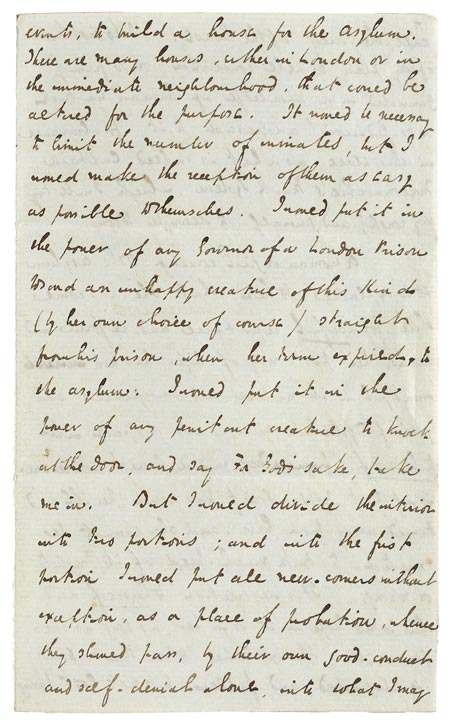 events, to build a house for the asylum.
There are many houses, either in London or in
the immediate neighbourhood, that could be
altered for the purpose. It would be necessary
to limit the number of inmates, but I
would make the reception of them as easy
as possible to themselves. I would put it in
the power of any Governor of a London Prison
to send an unhappy creature of this kind
(by her own choice of course) straight
from his prison, when her term expired, to
the asylum. I would put it in the
power of any penitent creature to knock
at the door, and say For God's sake, take
me in. But I would divide the interior
into two portions; and into the first
portion I would put all new-comers without
exception, as a place of probation, whence
they should pass, by their own good-conduct
and self-denial alone, into what I may